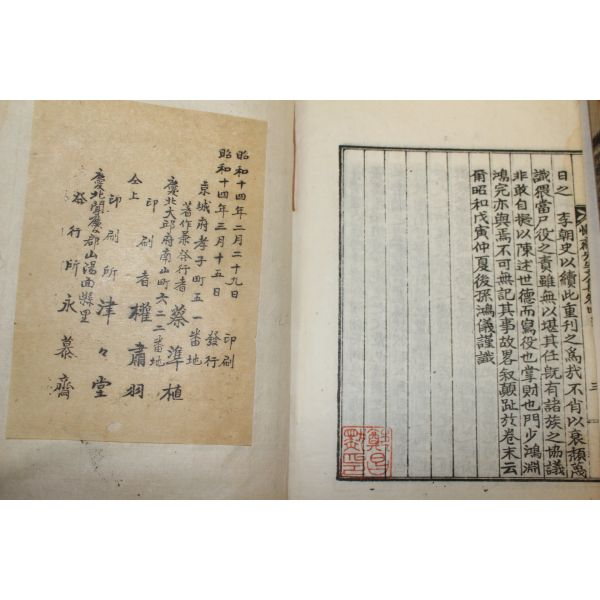 日之　李朝史以續此重刊之爲我不肖以衰頹
識猥當尸役之責雖無以堪其任旣有諸族之協議
非敢自擬以陳述世德而寫役也掌財也門少鴻淵
鴻完亦與焉不可無記其事故畧叙顚趾於卷末云
爾昭和戊寅仲夏後孫鴻儀謹識
三
昭和十四年二月二十九日　印刷
昭和十四年三月十五日　發行
京城府孝子町五一番地
著作兼發行者　蔡準植
慶北大邱府南山町六二二番地
印刷者　權肅羽
仝上
印刷所　津々堂
慶北聞慶郡山陽面縣里
發行所　永慕齋